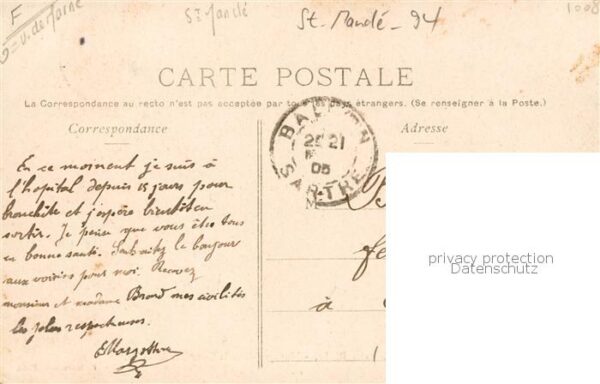 F
St Mandé
St. Mandé - 94
1008
CARTE POSTALE
La Correspondance au recto n'est pas acceptée par tous pays étrangers. (Se renseigner à la Poste.)
Correspondance
Adresse
BALLON
21
05
SARTHE
En ce moment je suis à
l'hopital depuis 15 jours pour
bronchite et j'espère bientôt en
sortir. Je pense que vous êtes tous
en bonne santé. Souhaitez le bonjour
aux voisins pour moi. Recevez
monsieur et madame Brard mes civilités
les plus respectueuses.
à
privacy protection
Datenschutz